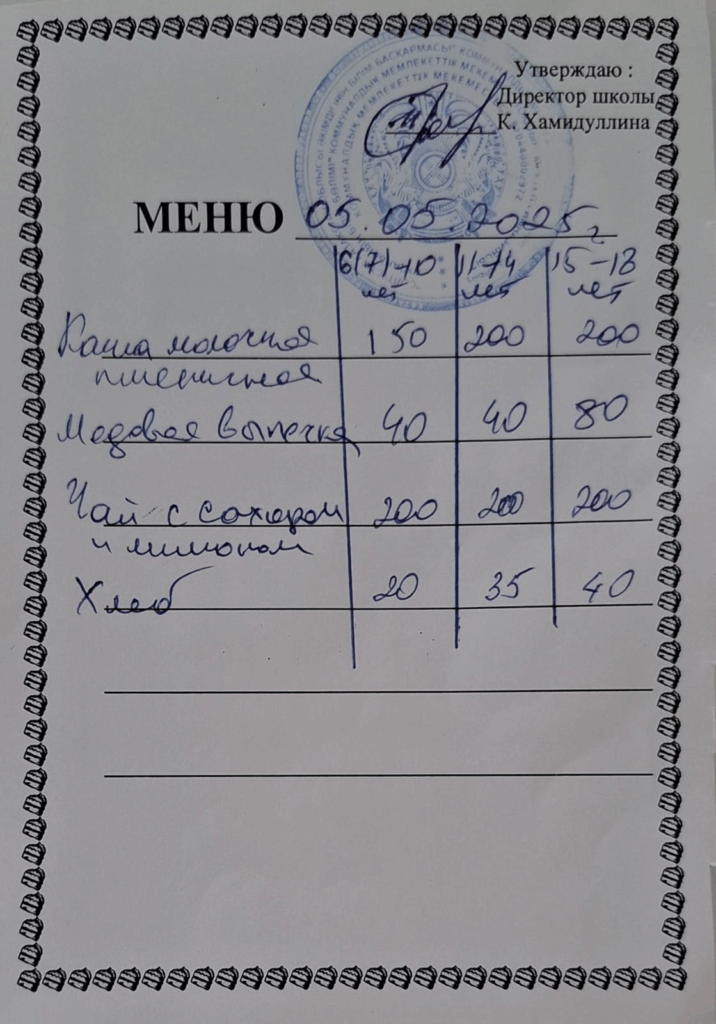 Утверждаю :
Директор школы
К. Хамидуллина
МЕНЮ 05.05.2025г
6(7)-10 11-14 15-18
лет лет лет
Каша молочная 150 200 200
пшеничная
Медовая выпечка 40 40 80
Чай с сахаром 200 200 200
и лимоном
Хлеб 20 35 40